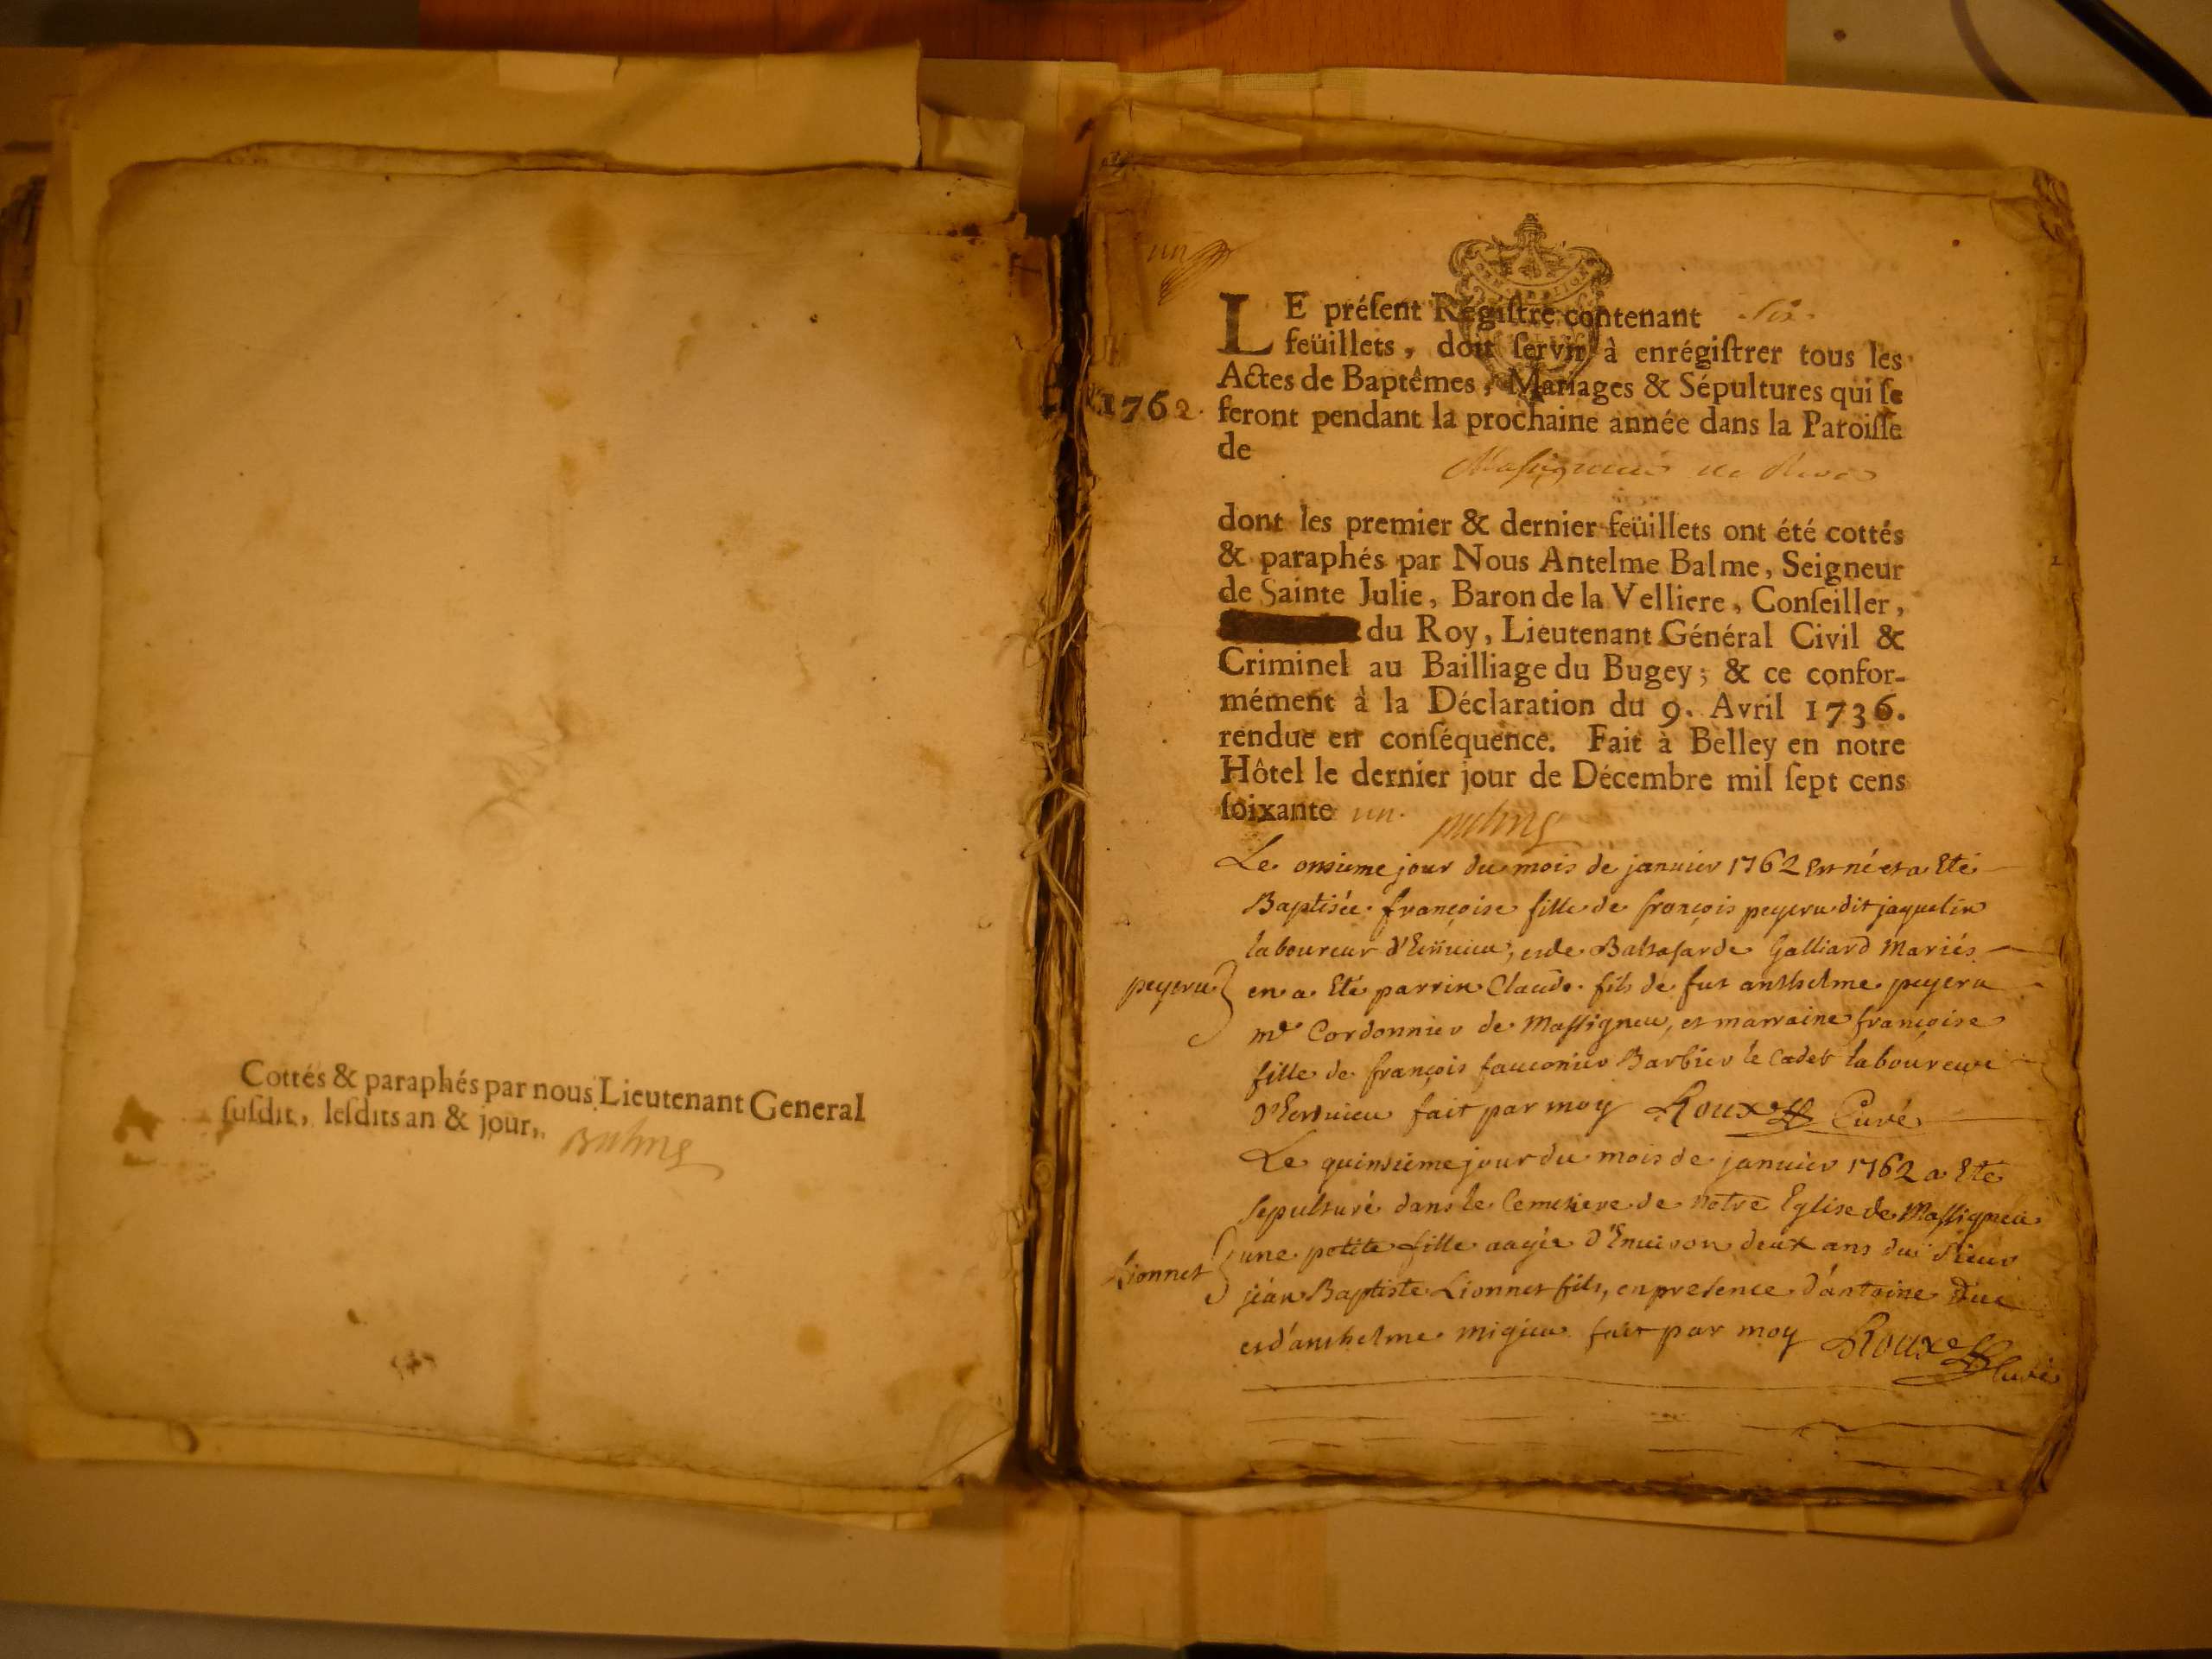 Cottés & paraphés par nous Lieutenant General
ſuſdit, leſdits an & jour,. Balme
un
LE préſent Régiſtre contenant six
feüillets, doit ſervir à enrégiſtrer tous les
Actes de Baptêmes, Mariages & Sépultures qui ſe
1762. feront pendant la prochaine année dans la Paroiſſe
de
Massigneu de Rives
dont les premier & dernier feüillets ont été cottés
& paraphés par Nous Antelme Balme, Seigneur
de Sainte Julie, Baron de la Velliere, Conſeiller,
du Roy, Lieutenant Général Civil &
Criminel au Bailliage du Bugey; & ce confor-
mément à la Déclaration du 9. Avril 1736.
rendue en conſéquence. Fait à Belley en notre
Hôtel le dernier jour de Décembre mil ſept cens
ſoixante un. Balme
Le onsieme jour du mois de janvier 1762 Est né et a Eté
Baptisée françoise fille de françois peyeru dit jaquelin
laboureur et de Baltasarde Galliard Mariés
peyeru en a Eté parrin Claude fils de fut anthelme peyeru
md Cordonnier de Massigneu, et marraine françoise
fille de françois fauconier Barbier le Cadet laboureur
fait par moy Roux Curé
Le quinsieme jour du mois de janvier 1762 a Eté
sepulturé dans le Cemetiere de notre Eglise de Massigneu
une petite fille aagée d'Environ deux ans du sieur
Lionnet jéan Baptiste Lionnet fils, en presence d'antoine
et d'anthelme migieu fait par moy Roux Curé